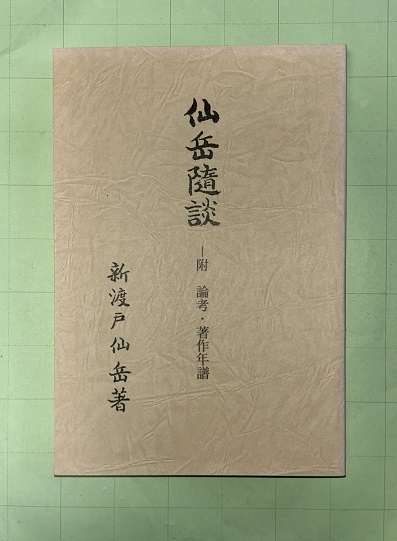 仙岳随談
―附 論考・著作年譜
新渡戸仙岳著